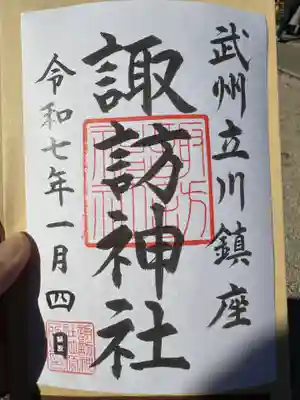 武州立川鎮座
諏訪神社
令和七年一月四日